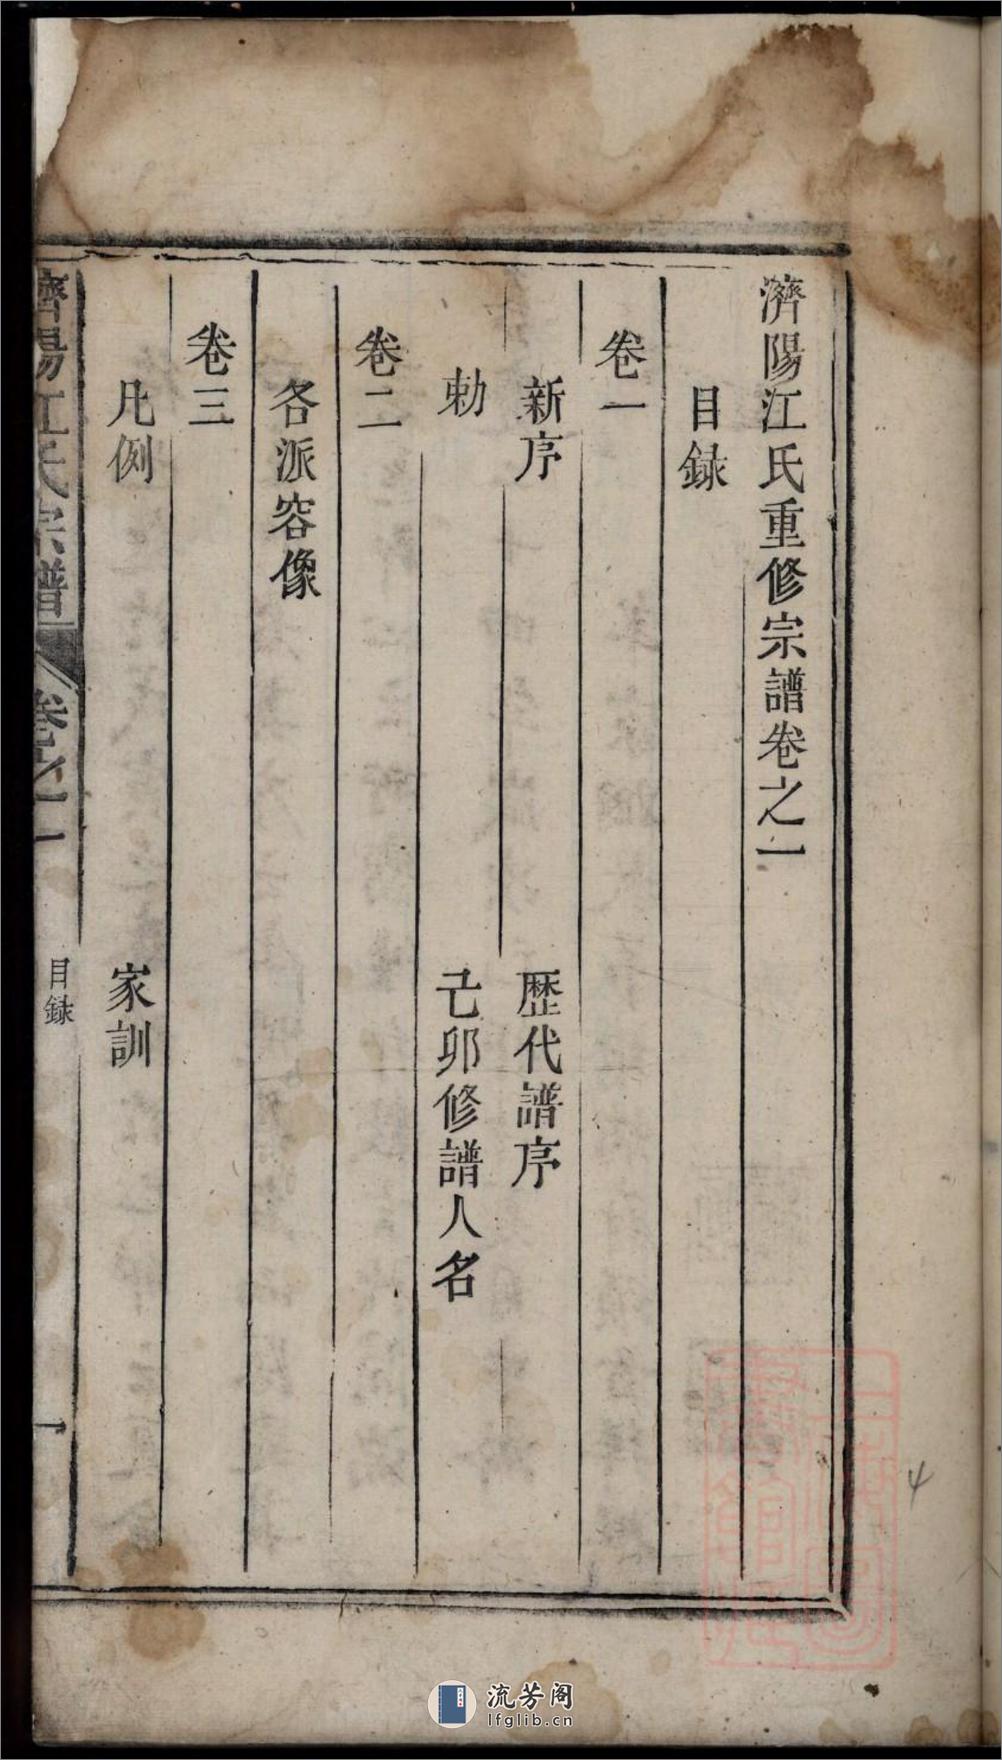 濟陽江氏重修宗譜卷之一
目録
卷一
新序　歷代譜序
勅　己卯修譜人名
卷二
各派容像
卷三
凡例　家訓
濟陽江氏宗譜　卷之一　目録　一
4
流芳阁
lfglib.cn